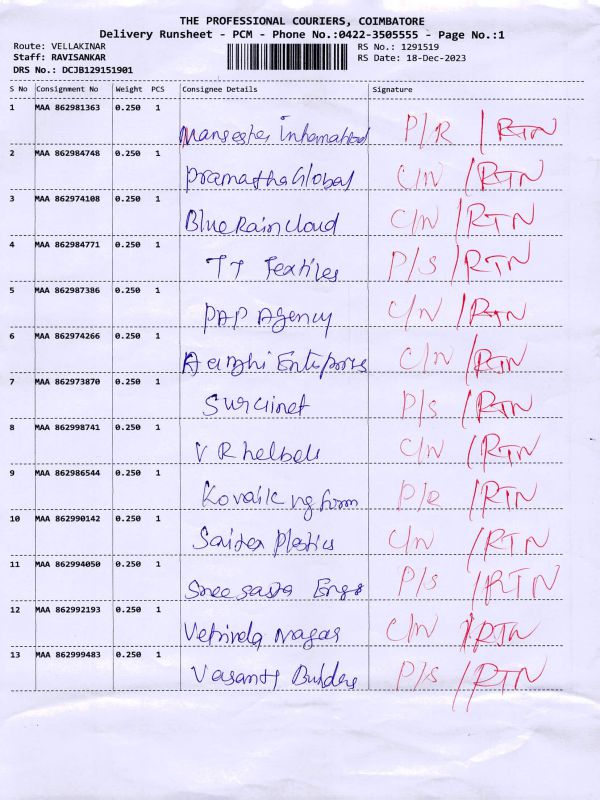 THE PROFESSIONAL COURIERS, COIMBATORE
Delivery Runsheet - PCM - Phone No.:0422-3505555 - Page No.:1
Route: VELLAKINAR RS No.: 1291519
Staff: RAVISANKAR RS Date: 18-Dec-2023
DRS No.: DCJB129151901
S No Consignment No Weight PCS Consignee Details Signature
1 MAA 862981363 0.250 1
P/R /RTN
2 MAA 862984748 0.250 1
Pramatha Global C/N /RTN
3 MAA 862974108 0.250 1
Blue Rain Cloud C/N /RTN
4 MAA 862984771 0.250 1
TT Textiles P/S /RTN
5 MAA 862987386 0.250 1
PAP Agency C/N /RTN
6 MAA 862974266 0.250 1
C/N /RTN
7 MAA 862973870 0.250 1
P/S /RTN
8 MAA 862998741 0.250 1
V R helbels C/N /RTN
9 MAA 862986544 0.250 1
P/R /RTN
10 MAA 862990142 0.250 1
Plastics C/N /RTN
11 MAA 862994050 0.250 1
Sree P/S /RTN
12 MAA 862992193 0.250 1
nagar C/N /RTN
13 MAA 862999483 0.250 1
P/S /RTN